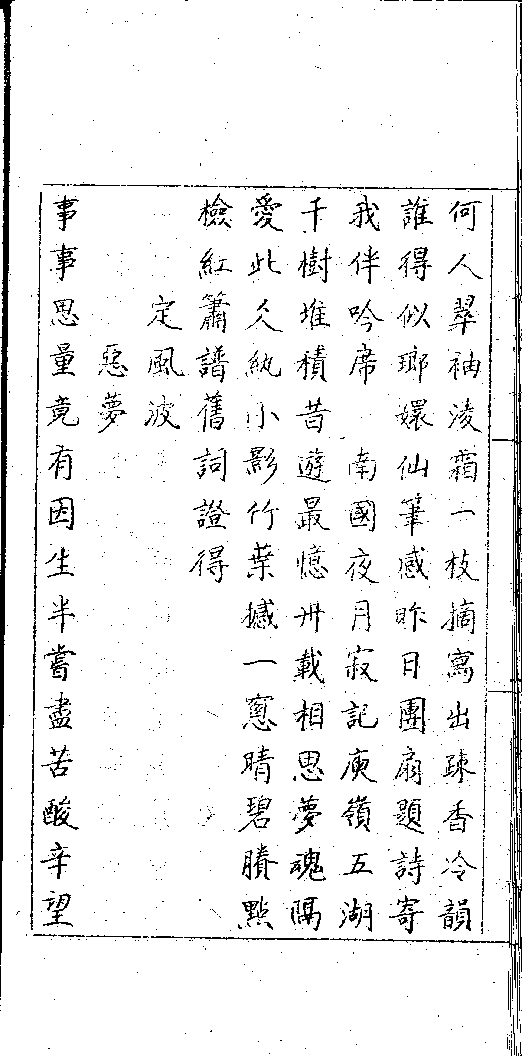 何人翠袖凌霜一枝摘寫出疎香冷韻
誰得似瑯嬛仙筆感昨日團扇題詩寄
我伴吟席　南國夜月寂記庾嶺五湖
千樹堆積昔遊最憶卅載相思夢魂隔
愛此久紈小影竹葉撼一窻晴碧賸點
檢紅簫譜舊詞證得
定風波
惡夢
事事思量竟有因生半嘗盡苦酸辛望